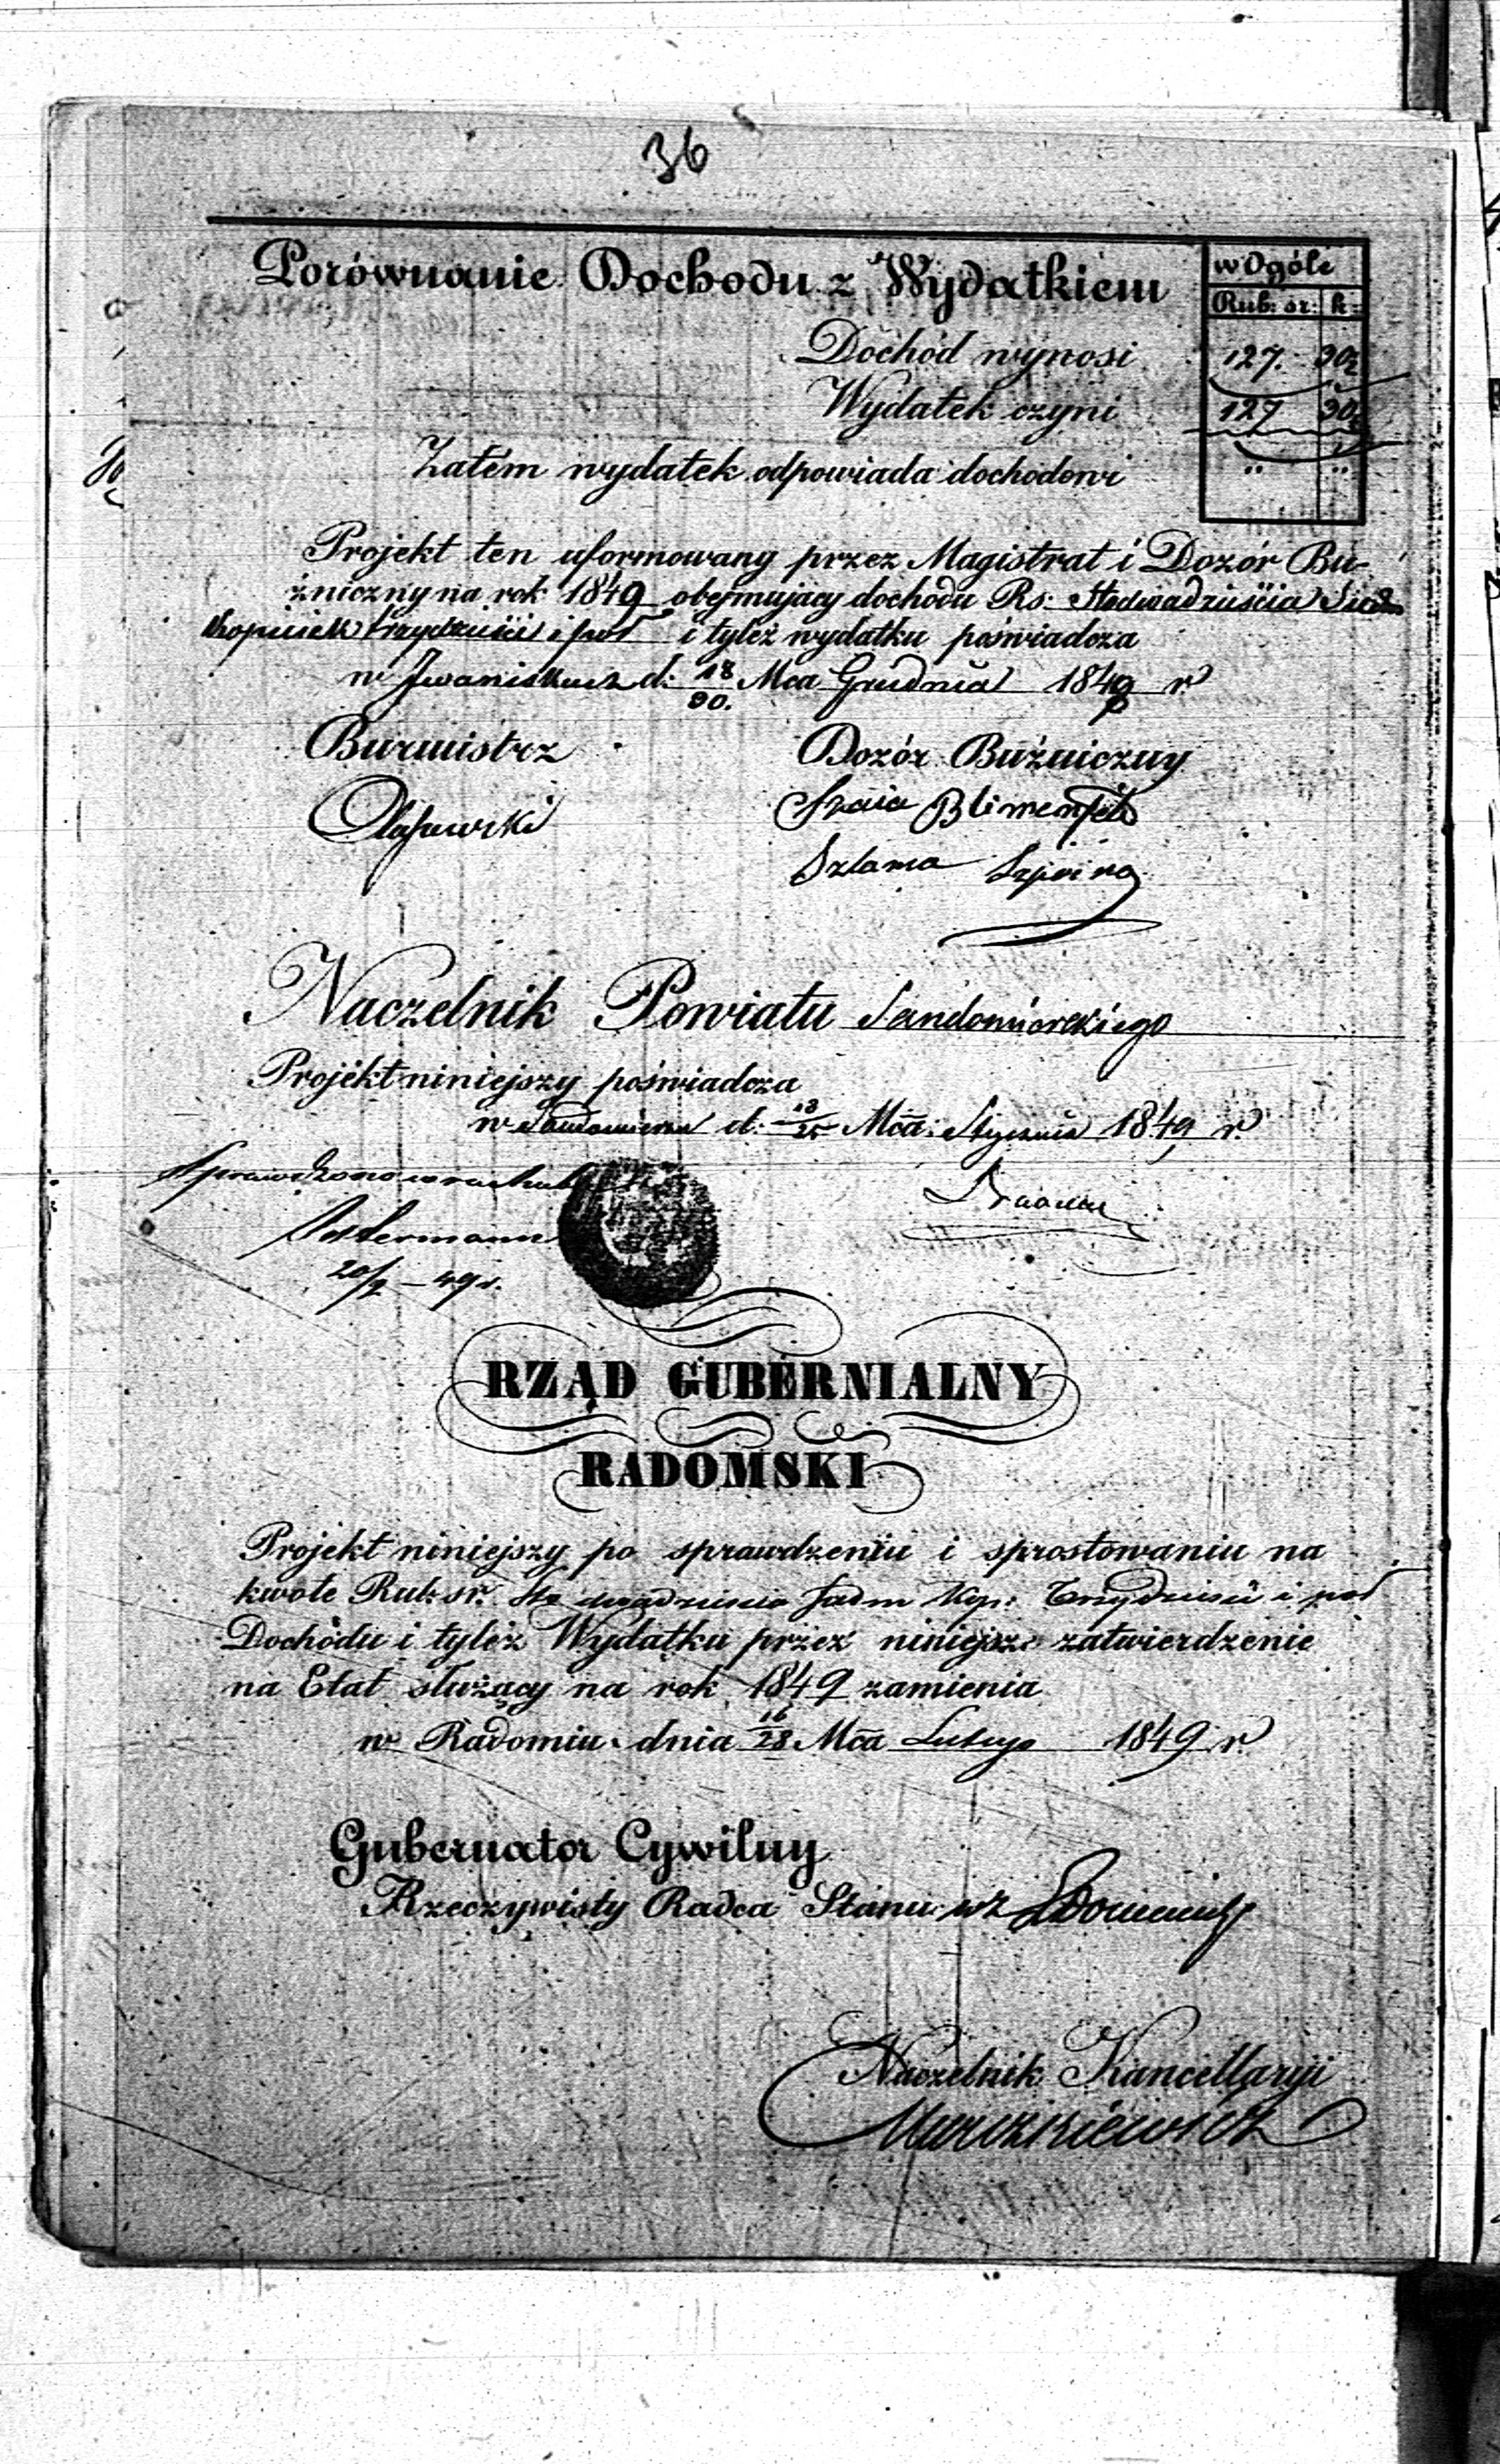 36
Porównanie Dochodu z Wydatkiem
w Ogóle
Rub: sr: k:
Dochód wynosi 127. 30½
Wydatek czyni 127 30½
Zatém wydatek odpowiada dochodowi " "
Projekt ten uformowany przez Magistrat i Dozór Bu-
źniczny na rok 1849 obejmujący dochodu Rs: Stodwadzieścia Siedm
Kopiiek trzydzieści i pół i tyleż wydatku poświadcza
w Iwaniskach d: 18/30. Mca Grudnia 1848 r.
Burmistrz Dozór Buźniczny
Szaia Blimenfeld
Szlama Szpiro
Naczelnik Powiatu Sandomierskiego
Projekt niniejszy poświadcza
w Sandomierzu d: 13/25 Mca: Stycznia 1849 r.
Sprawdzono w rachubie
Ostermann
20/2 – 49 r.
RZĄD GUBERNIALNY
RADOMSKI
Projekt niniejszy po sprawdzeniu i sprostowaniu na
kwotę Rub. sr. Sto dwadzieścia siedm Kop: Trzydzieści i pół
Dochodu i tyleż Wydatku przez niniejsze zatwierdzenie
na Etat służący na rok 1849 zamienia
w Radomiu dnia 16/28 Mca Lutego 1849 r.
Gubernator Cywilny
Rzeczywisty Radca Stanu wz
Naczelnik Kancellaryi
Marczkiewicz